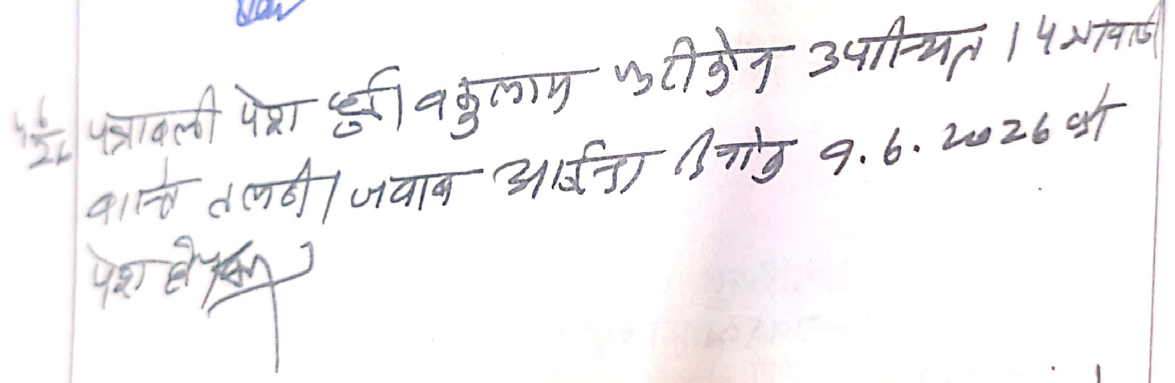 पत्रावली पेश हुई। वकुलाय फरीकेन उपस्थित। पत्रावली
वास्ते तलबी/जवाब आईन्दा दिनांक 9.6.2026 को
पेश हो।